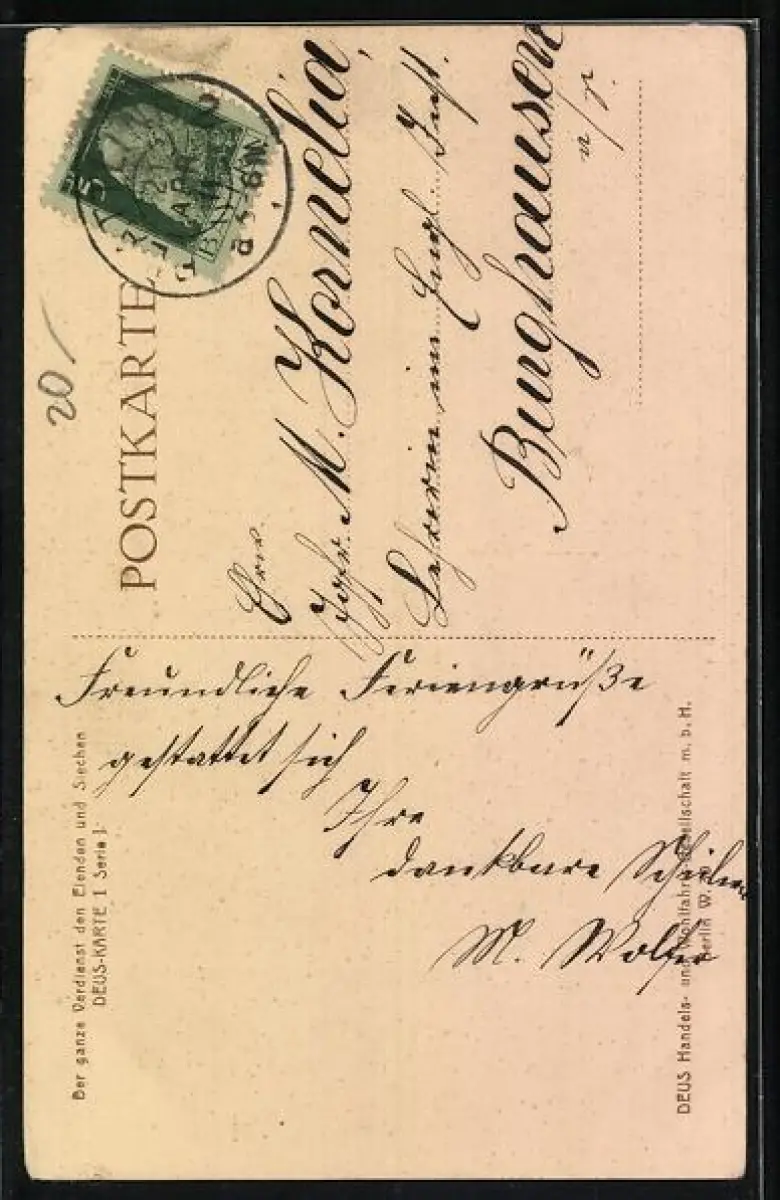 POSTKARTE
20/
5
21
APR
11
BAYERN
Ehrw.
Jgfr. M. Kornelia,
Lehrerin im Engl. Inst.
Burghausen
a/s.
Freundliche Feriengrüße
gestattet sich
Ihre
dankbare Schülerin
M. Wolfer
Der ganze Verdienst den Elenden und Siechen
DEUS-KARTE 1 Serie 1.
DEUS Handels- und Wohlfahrtsgesellschaft m. b. H.
Berlin W.